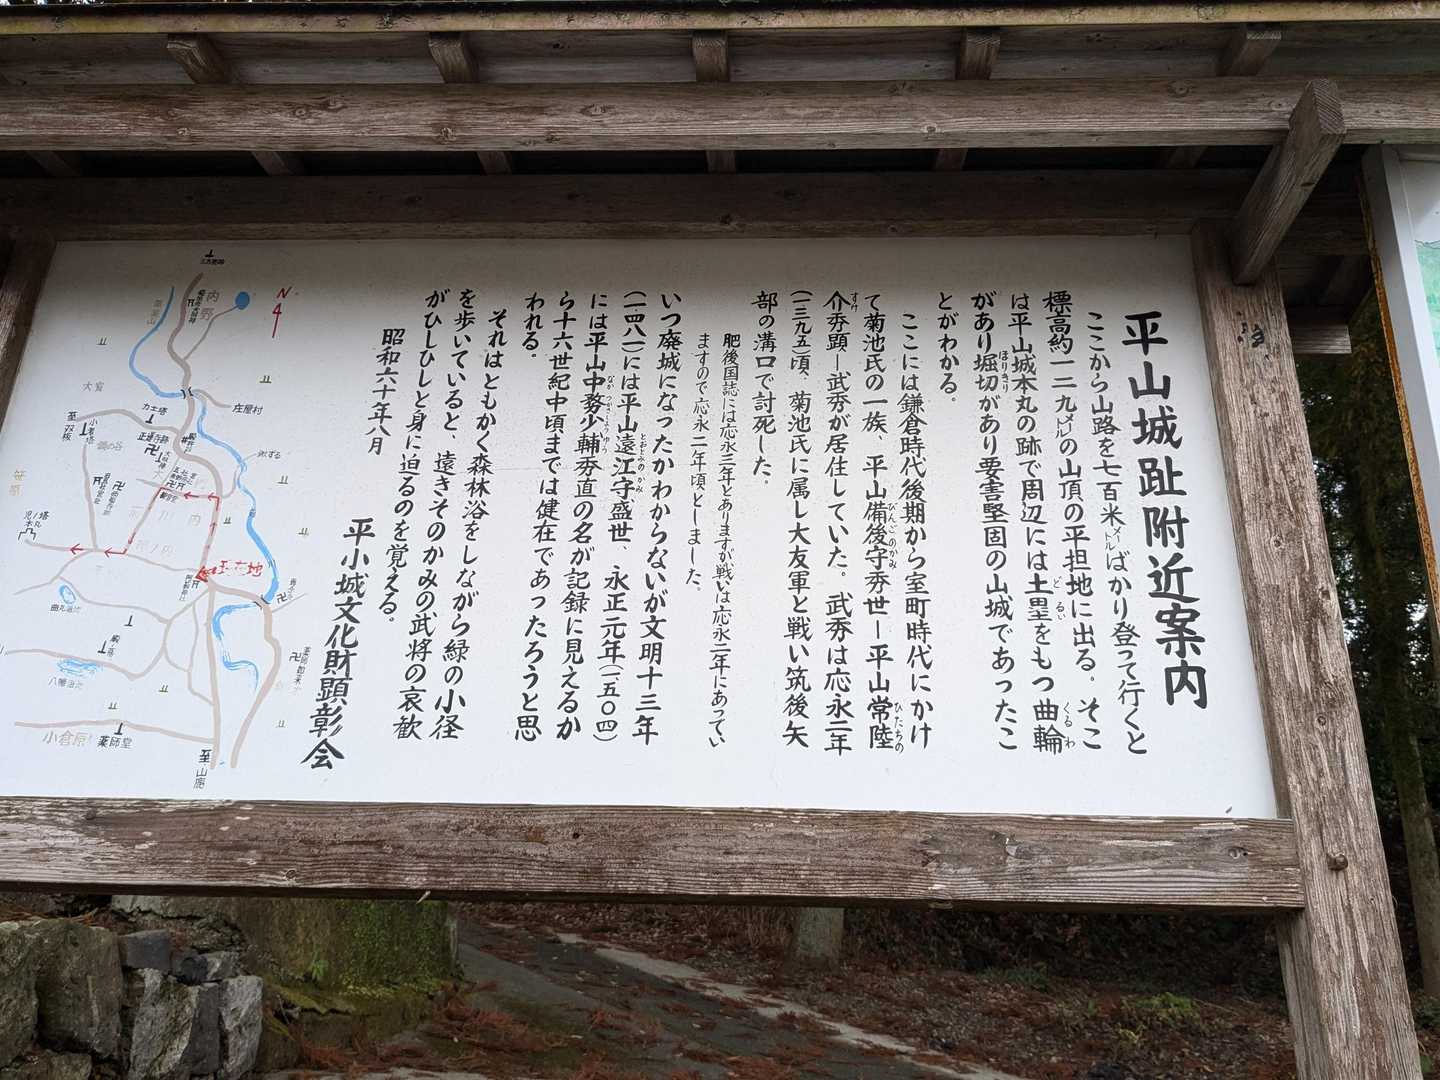 平山城趾附近案内
ここから山路を七百米メートルばかり登って行くと
標高約一二九メートルの山頂の平担地に出る。そこ
は平山城本丸の跡で周辺には土塁どるいをもつ曲輪くるわ
があり堀切ほりきりがあり要害堅固の山城であったこ
とがわかる。
ここには鎌倉時代後期から室町時代にかけ
て菊池氏の一族、平山備後守びんごのかみ秀世―平山常陸ひたちの
介すけ秀顕―武秀が居住していた。武秀は応永二年
(一三九五)頃、菊池氏に属し大友軍と戦い筑後矢
部の溝口で討死した。
肥後国誌には応永三年とありますが戦いは応永二年にあってい
ますので応永二年頃としました。
いつ廃城になったかわからないが文明十三年
(一四八一)には平山遠江守とおとみのかみ盛世、永正元年(一五〇四)
には平山中務少輔なかつかさしょうゆう秀直の名が記録に見えるか
ら十六世紀中頃までは健在であったろうと思
われる。
それはともかく森林浴をしながら緑の小径
を歩いていると、遠きそのかみの武将の哀歓
がひしひしと身に迫るのを覚える。
昭和六十年八月
平小城文化財顕彰会
N
内野
庄屋村
大宮
力士塔
至双板
現在地
八幡溜池
小倉原
薬師堂
至山鹿